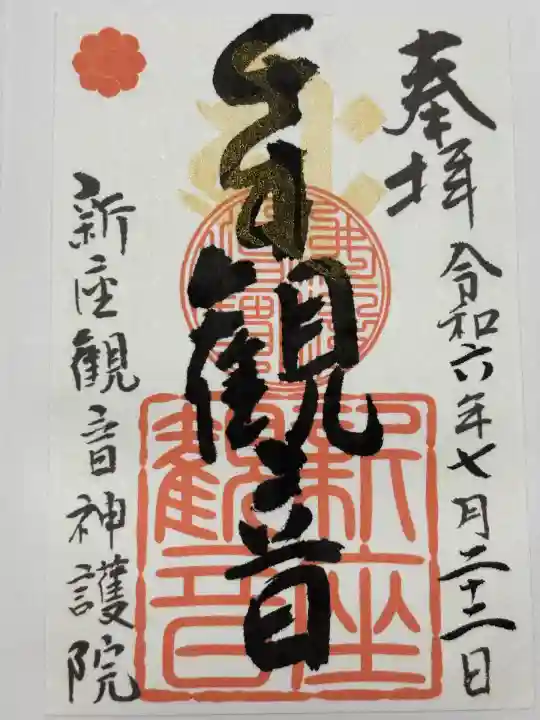 奉拝
令和六年七月二十二日
聖観音
新座観音
新座観音神護院